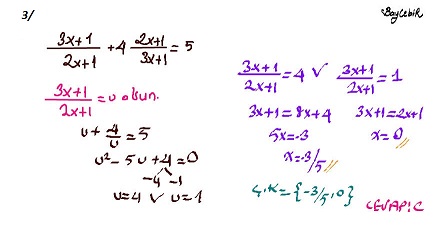 3/
BayCebir
(3x+1)/(2x+1) + 4 (2x+1)/(3x+1) = 5
(3x+1)/(2x+1) = u olsun.
u + 4/u = 5
u² - 5u + 4 = 0
-4 -1
u = 4 ✓ u = 1
(3x+1)/(2x+1) = 4 ✓ (3x+1)/(2x+1) = 1
3x+1 = 8x+4 3x+1 = 2x+1
5x = -3 x = 0
x = -3/5
Ç.K = {-3/5, 0}
CEVAP: C